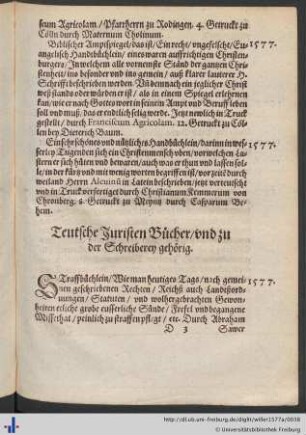 scum Agricolam / Pfarrherrn zu Rodingen. 4. Getruckt zu
Cölln durch Maternum Cholinum.
Biblischer Ampt spiegel / das ist / Ein recht / Eu-
angelisch Handtbüchlein / eines waren auffrichtigen Christen- 1577.
burgers / In welchem alle vornemste Ständ der gantzen Chri-
stenheit / ins besonder vnd ins gemein / auß klarer lauterer H.
Schrifft beschrieben werden. Vñ demnach ein jeglicher Christ
weß stands oder würden er ist / als in einem Spiegel erlehrnen
kan / wie er nach Gottes wort in seinem Ampt vnd Beruff leben
soll vnd muß, das er endtlich selig werde. Jetzt newlich in Truck
gestellt / durch Franciscum Agricolam. 12. Getruckt zu Cöl-
len bey Dieterich Baum.
Ein sehr schönes vnd nützliches Handtbüchlein / darinn in 1577.
Tugenden sich ein Christenmensch vben / vor welchen La-
stern er sich hüten vnd bewaren / auch was er thun vnd lassen sol-
le / in der kürtz vnd mit wenig worten begriffen ist / vor zeiten durch
weiland Herrn Alcuinũ in Latein beschrieben / jetzt verteutscht
vnd in Truck verfertiget durch Christianum Kemmerer von
Chronberg. 8. Getruckt zu Meyntz durch Casparum Be-
hem.
Teutsche Juristen Bücher / vnd zu
der Schreiberey gehörig.
Straffbüchlein / Wie man heutiges Tags / nach gemei- 1577.
nen geschriebenen Rechten / Reichs auch Landtsord-
nungen / Statuten / vnd wolhergebrachten Gewon-
heiten etliche grobe eusserliche Sünde / Frefel vnd begangene
Missethat / peinlich zu straffen pflegt / etc. Durch Abraham
D 3 Sawer
http://dl.ub.uni-freiburg.de/diglit/willer1577a/0038
© Universitätsbibliothek Freiburg